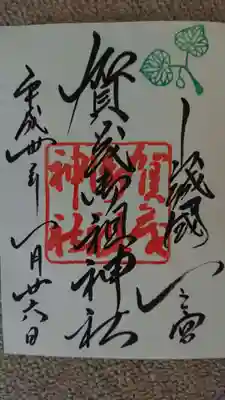 山城國一之宮
賀茂御祖神社
平成卅年 月廿六日
賀茂
神社